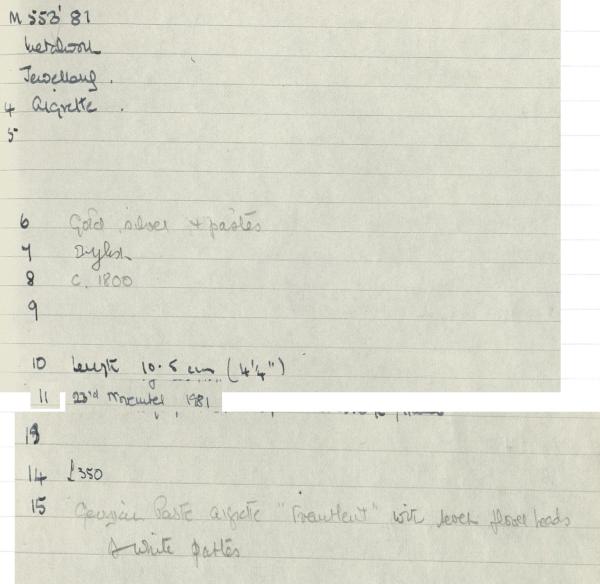 M 553' 81
Metalwork
Jewellery.
4 Aigrette.
5
6 Gold silver + pastes
7 English
8 c. 1800
9
10 Length 10.5 cm (4¼")
11 23rd November 1981
13
14 £350
15 Georgian Paste aigrette "Tremblent" with seven flower heads
of white pastes